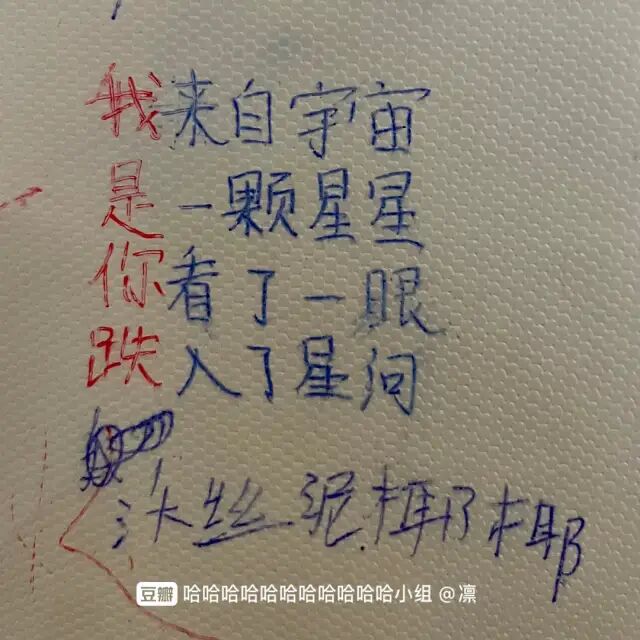 我来自宇宙
是一颗星星
你看了一眼
跌入了星河
汰丝.泥.椰椰
豆瓣 哈哈哈哈哈哈哈哈哈哈哈小组 @凛